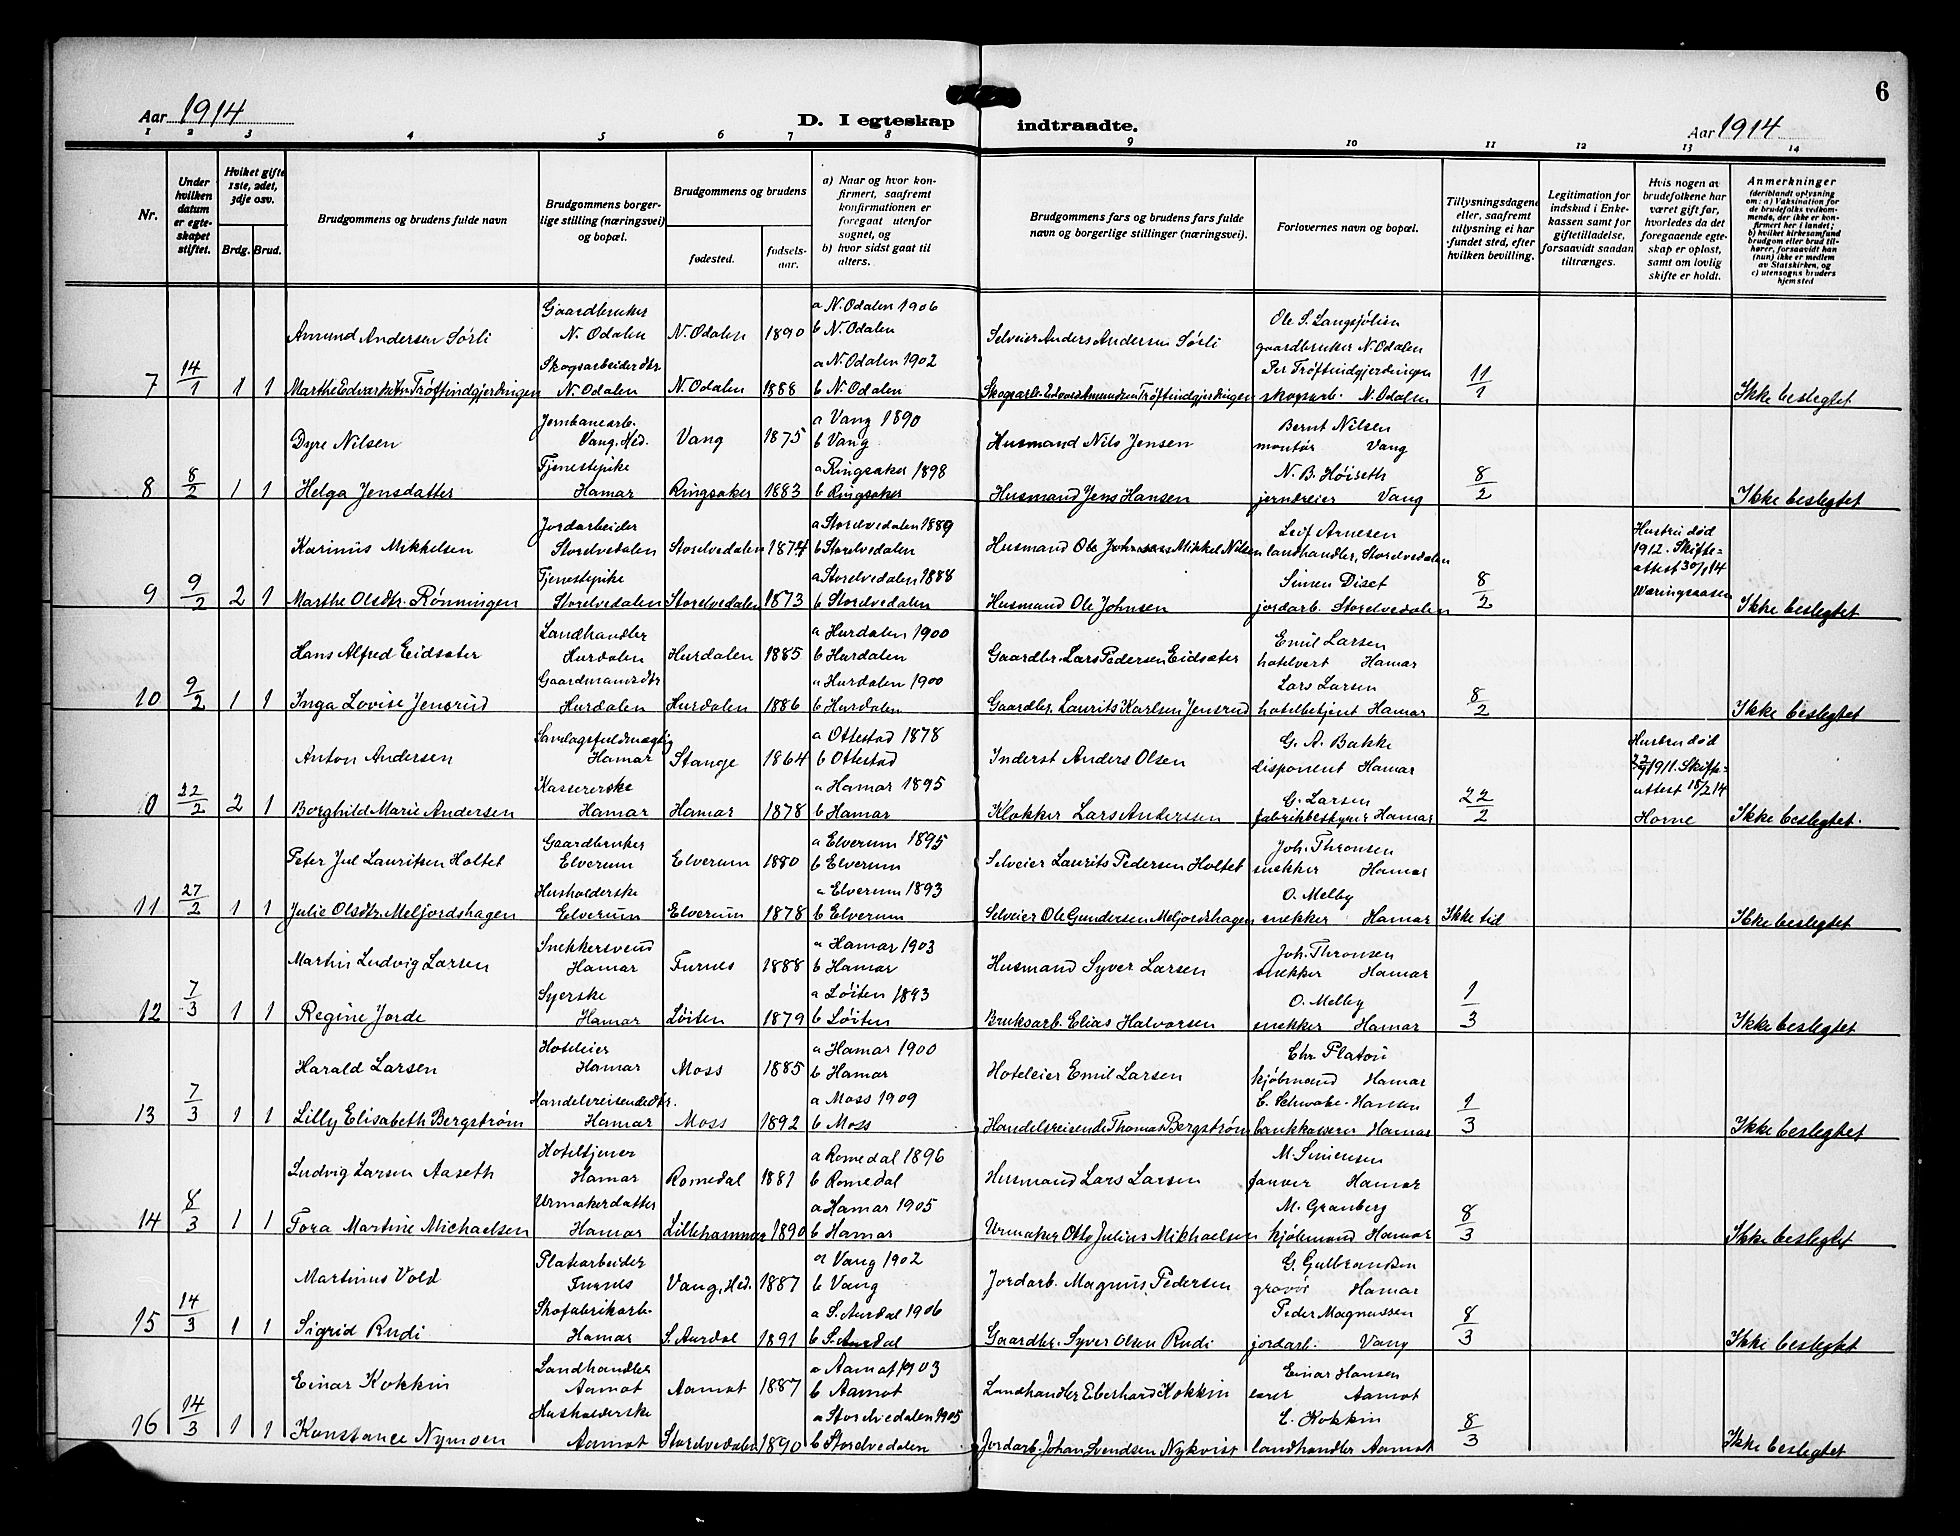 6
Aar 1914
D. I egteskap indtraadte.
Aar 1914
1 2 3 4 5 6 7 8 9 10 11 12 13 14
Nr.
Under hvilken datum er egteskapet stiftet.
Hvilket gifte 1ste, 2det, 3dje osv.
Brdg. Brud.
Brudgommens og brudens fulde navn
Brudgommens borgerlige stilling (næringsvei) og bopæl.
Brudgommens og brudens
fødested. fødselsaar.
a) Naar og hvor konfirmert, saafremt konfirmationen er foregaat utenfor sognet, og
b) hvor sidst gaat til alters.
Brudgommens fars og brudens fars fulde navn og borgerlige stillinger (næringsvei).
Forlovernes navn og bopæl.
Tillysningsdagene eller, saafremt tillysning ei har fundet sted, efter hvilken bevilling.
Legitimation for indskud i Enkekassen samt for giftetilladelse, forsaavidt saadan tiltrænges.
Hvis nogen av brudefolkene har været gift før, hvorledes da det foregaaende egteskap er opløst, samt om lovlig skifte er holdt.
Anmerkninger
(deriblandt oplysning om: a) Vaksination for de brudefolks vedkommende, der ikke er konfirmert her i landet; b) hvilket kirkesamfund brudgom eller brud tilhører, forsaavidt han (hun) ikke er medlem av Statskirken, og c) utensogns bruders hjemsted
Amund Andersen Sørli Gaardbruker N. Odalen N. Odalen 1890 a N. Odalen 1906 b N. Odalen Selveier Anders Andersen Sørli Ole S. Langsjølien gaardbruker N. Odalen
7 14/1 1 1 Marthe Edvardsdtr. Trøftindgjerdingen Skogsarbeiderdtr N. Odalen N. Odalen 1888 a N. Odalen 1902 b N. Odalen Skogsarb. Edvard Amundsen Trøftindgjerdingen Per Trøftindgjerdingen skogsarb. N. Odalen 11/1 Ikke beslegtet
Dyre Nilsen Jernbanearb. Vang, Hed. Vang 1875 a Vang 1890 b Vang Husmand Nils Jensen Bernt Nilsen montør Vang
8 8/2 1 1 Helga Jensdatter Tjenestepike Hamar Ringsaker 1883 a Ringsaker 1898 b Ringsaker Husmand Jens Hansen N. B. Høiseth jerndreier Vang 8/2 Ikke beslegtet
Karinus Mikkelsen Jordarbeider Storelvedalen Storelvedalen 1874 a Storelvedalen 1889 b Storelvedalen Husmand Ole Johnsen Mikkel Nilsen Leif Arnesen landhandler, Storelvedalen Hustru død 1912. Skifteattest 30/1 14
9 9/2 2 1 Marthe Olsdtr. Rønningen Tjenestepike Storelvedalen Storelvedalen 1873 a Storelvedalen 1888 b Storelvedalen Husmand Ole Johnsen Simen Diset jordarb. Storelvedalen 8/2 Væringsaasen Ikke beslegtet
Hans Alfred Eidsæter Landhandler Hurdalen Hurdalen 1885 a Hurdalen 1900 b Hurdalen Gaardbr. Lars Pedersen Eidsæter Emil Larsen hotelvert Hamar
10 9/2 1 1 Inga Lovise Jensrud Gaardmannsdtr Hurdalen Hurdalen 1886 a Hurdalen 1900 b Hurdalen Gaardbr. Laurits Karlsen Jensrud Lars Larsen hotelbetjent Hamar 8/2 Ikke beslegtet
Anton Andersen Hamar Stange 1864 a Ottestad 1878 b Ottestad Inderst Anders Olsen G. A. Bakke disponent Hamar Hustru død 1911. Skifteattest 18/2 14
10 22/2 2 1 Borghild Marie Andersen Kassererske Hamar Hamar 1878 a Hamar 1895 b Hamar Klokker Lars Anderssen G. Larsen fabrikbestyrer Hamar 22/2 Horne Ikke beslegtet.
Peter Jul Lauritsen Holtet Gaardbruker Elverum Elverum 1880 a Elverum 1895 b Elverum Selveier Laurits Pedersen Holtet Joh. Thronsen snekker Hamar
11 27/2 1 1 Julie Olsdtr. Meljordshagen Husholderske Elverum Elverum 1878 a Elverum 1893 b Elverum Selveier Ole Gundersen Meljordshagen O. Melby snekker Hamar Ikke tid Ikke beslegtet
Martin Ludvig Larsen Snekkersvend Hamar Furnes 1888 a Hamar 1903 b Hamar Husmand Syver Larsen Joh. Thronsen snekker Hamar
12 7/3 1 1 Regine Jorde Syerske Hamar Løiten 1879 a Løiten 1893 b Løiten Bruksarb. Elias Halvorsen O. Melby snekker Hamar 1/3 Ikke beslegtet
Harald Larsen Hoteleier Hamar Moss 1885 a Hamar 1900 b Hamar Hoteleier Emil Larsen Chr Platou kjøbmand Hamar
13 7/3 1 1 Lilly Elisabeth Bergstrøm Handelsreisendedtr. Hamar Moss 1892 a Moss 1909 b Moss Handelsreisende Thomas Bergstrøm C. Schwabe-Hansen bankkasserer Hamar 1/3 Ikke beslegtet
Ludvig Larsen Aaseth Hoteltjener Hamar Romedal 1881 a Romedal 1896 b Romedal Husmand Lars Larsen M. Simensen farver Hamar
14 8/3 1 1 Tora Martine Michaelsen Urmakerdatter Hamar Lillehammer 1890 a Hamar 1905 b Hamar Urmaker Otto Julius Mikhaelsen M. Granberg kjøbmand Hamar 8/3 Ikke beslegtet
Martinus Vold Platearbeider Furnes Vang, Hed. 1887 a Vang 1902 b Vang Jordarb. Magnus Pedersen G. Gulbrandsen gravør Hamar
15 14/3 1 1 Sigrid Rudi Skofabrikarb. Hamar S. Aurdal 1891 a S. Aurdal 1906 b S. Aurdal Gaardbr. Syver Olsen Rudi Peder Magnussen jordarb. Vang 8/3 Ikke beslegtet
Einar Kokkin Landhandler Aamot Aamot 1887 a Aamot 1903 b Aamot Landhandler Eberhard Kokkin Einar Hansen lærer Aamot
16 14/3 1 1 Konstance Nymoen Husholderske Aamot Storelvedalen 1890 a Storelvedalen 1905 b Storelvedalen Jordarb. Johan Svendsen Nykvist E. Kokkin landhandler Aamot 8/3 Ikke beslegtet